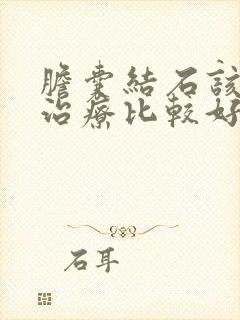 膽囊結石該
治療比較好
石耳